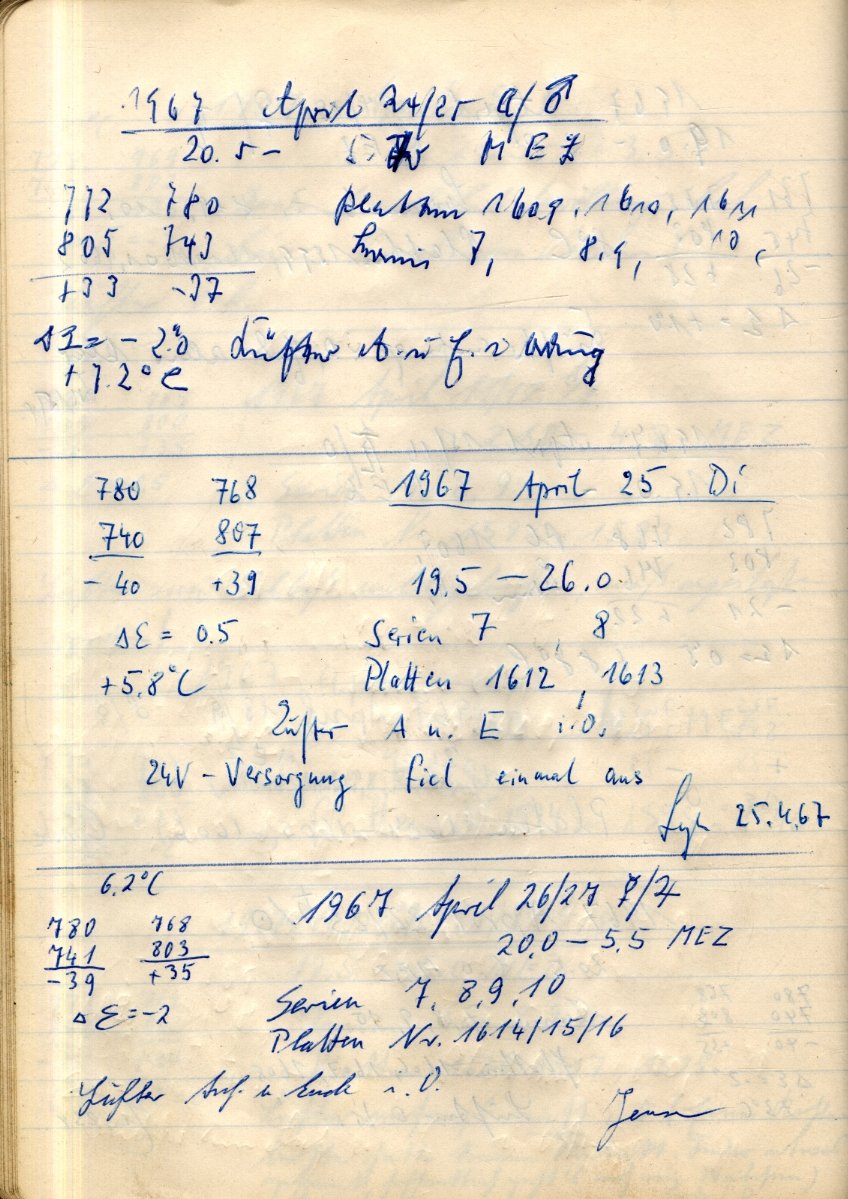 1967 April 24/25 ☾/♂
20.5 – 5. MEZ
772 780 Platten 1609, 1610, 1611
805 743 Serien 7, 8.9, 10,
+33 -37
ΔΣ = - 2.0 Lüfter A. u E. i Ordnung
+7.2°C
780 768 1967 April 25 Di
740 807
- 40 +39 19.5 — 26.0
ΔΣ = 0.5 Serien 7 8
+5,8°C Platten 1612, 1613
Lüfter A u. E i.O.
24V - Versorgung fiel einmal aus
25.4.67
6.2°C 1967 April 26/27 ☿/♃
780 768 20.0 — 5.5 MEZ
741 803
-39 +35 Serien 7, 8, 9, 10
ΔΣ = -2 Platten Nr. 1614/15/16
Lüfter Anf. u Ende i. O.